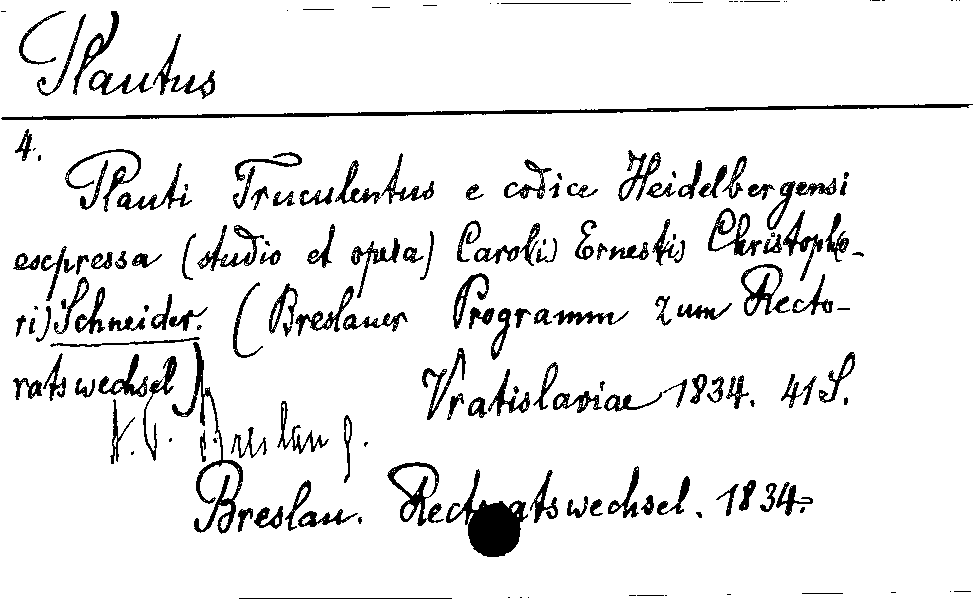 Plautus
4.
Plauti Truculentus e codice Heidelbergensi
expressa (studio et opera) Carol(i) Ernest(i) Christopho-
ri) Schneider. (Breslauer Programm zum Recto-
ratswechsel)
Vratislaviae 1834. 41 S.
Breslau
Breslau. Rectoratswechsel. 1834.